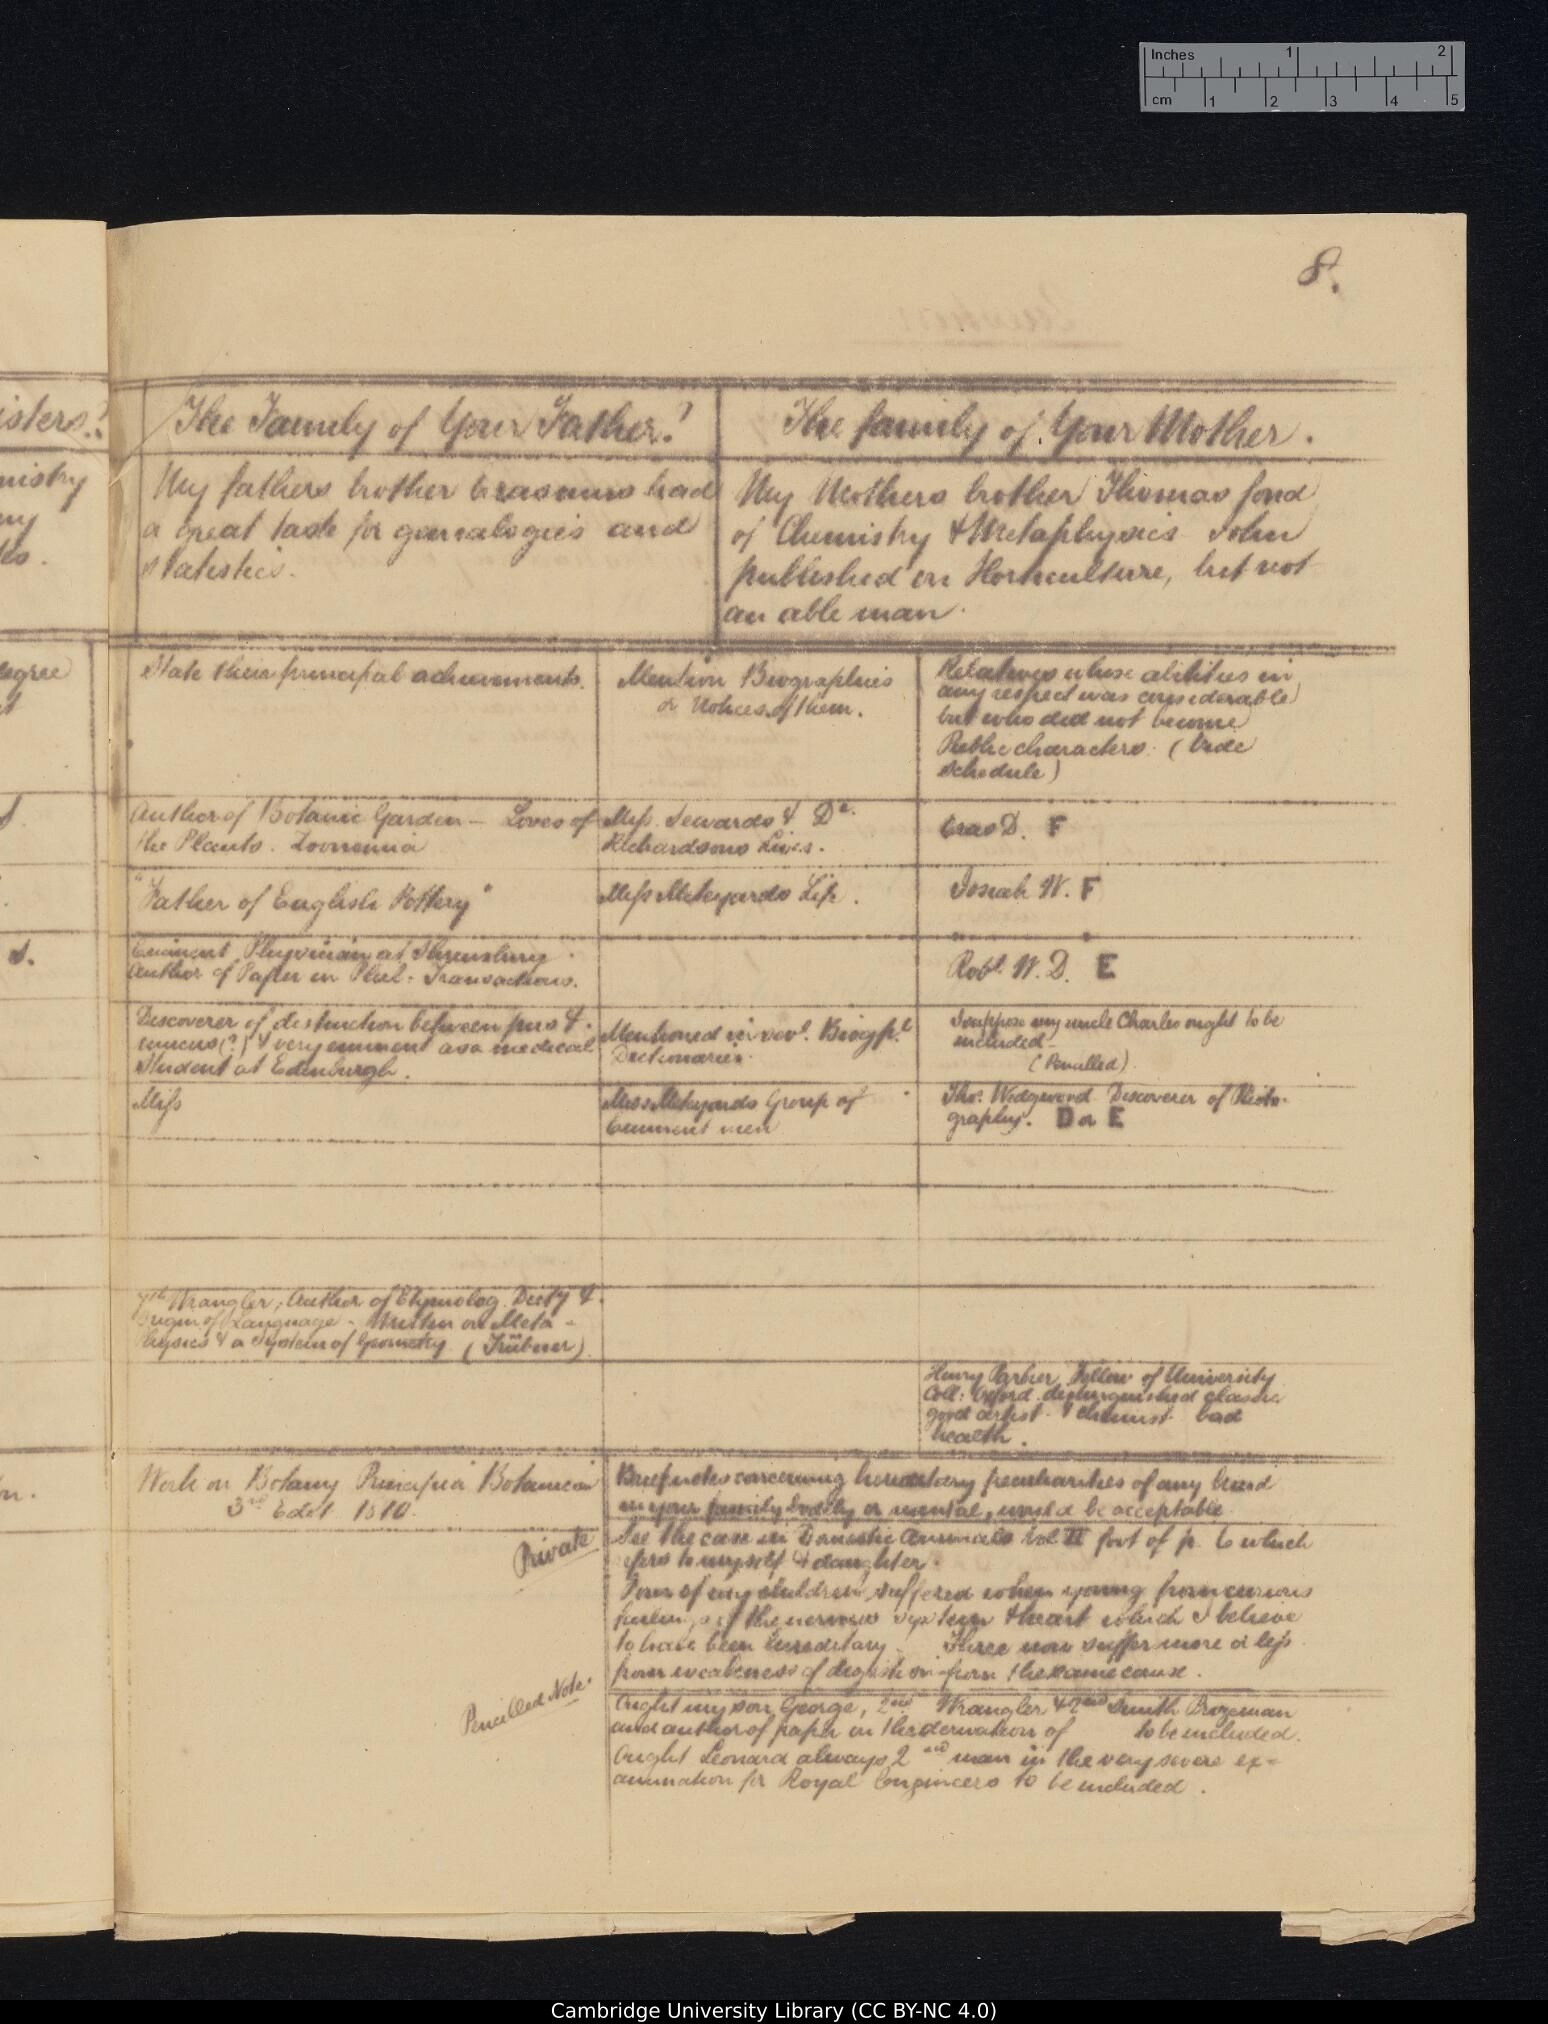 Inches 1 2
cm 1 2 3 4 5
8.
isters?
The Family of Your Father?
The family of Your Mother.
mistry
My fathers brother Erasmus had
a great taste for genealogies and
statistics.
My Mothers brother Thomas fond
of Chemistry & Metaphysics John
published on Horticulture, but not
an able man.
degree
State their principal achievements.
Mention Biographies
or Notices of them.
Relatives whose abilities in
any respect was considerable
but who did not become
Public characters. (Vide
Schedule)
Author of Botanic Garden – Loves of
the Plants. Zoonomia
Miss Sewards & Dr.
Richardsons Lives.
Eras D. F
"Father of English Pottery"
Miss Meteyards Life.
Josiah W. F
Eminent Physician at Shrewsbury
Author of Paper in Phil. Transactions.
Robt. W. D. E
Discoverer of distinction between pus &
mucus (?) & very eminent as a medical
Student at Edinburgh.
Mentioned in sevl. Biogpl
Dictionaries.
I suppose my uncle Charles ought to be
included –
(Pencilled)
Miss
Miss Meteyards Group of
Eminent men
Thos. Wedgwood Discoverer of Photo-
graphy. D or E
7th Wrangler; Author of Etymolog. Dicty &
Origin of Language – Written on Meta-
Physics & a System of Geometry. (Trübner)
Henry Parker Fellow of University
Coll: Oxford distinguished classic
good artist & chemist bad
health.
Work on Botany Principia Botanica
3rd Edit 1810.
Brief notes concerning hereditary peculiarities of any kind
in your family bodily or mental, would be acceptable
Private
See the case in Domestic Animals Vol II foot of p. 6 which
refers to myself & daughter.
Four of my children suffered when young from curious
feelings of the nervous system & heart which I believe
to have been hereditary – Three now suffer more or less
from weakness of digestion from the same cause.
Pencilled Note.
Ought my son George, 2nd Wrangler & 2nd Smith Prizeman
and author of paper on the derivation of to be included.
Ought Leonard always 2nd man in the very severe ex-
amination for Royal Engineers to be included.
Cambridge University Library (CC BY-NC 4.0)